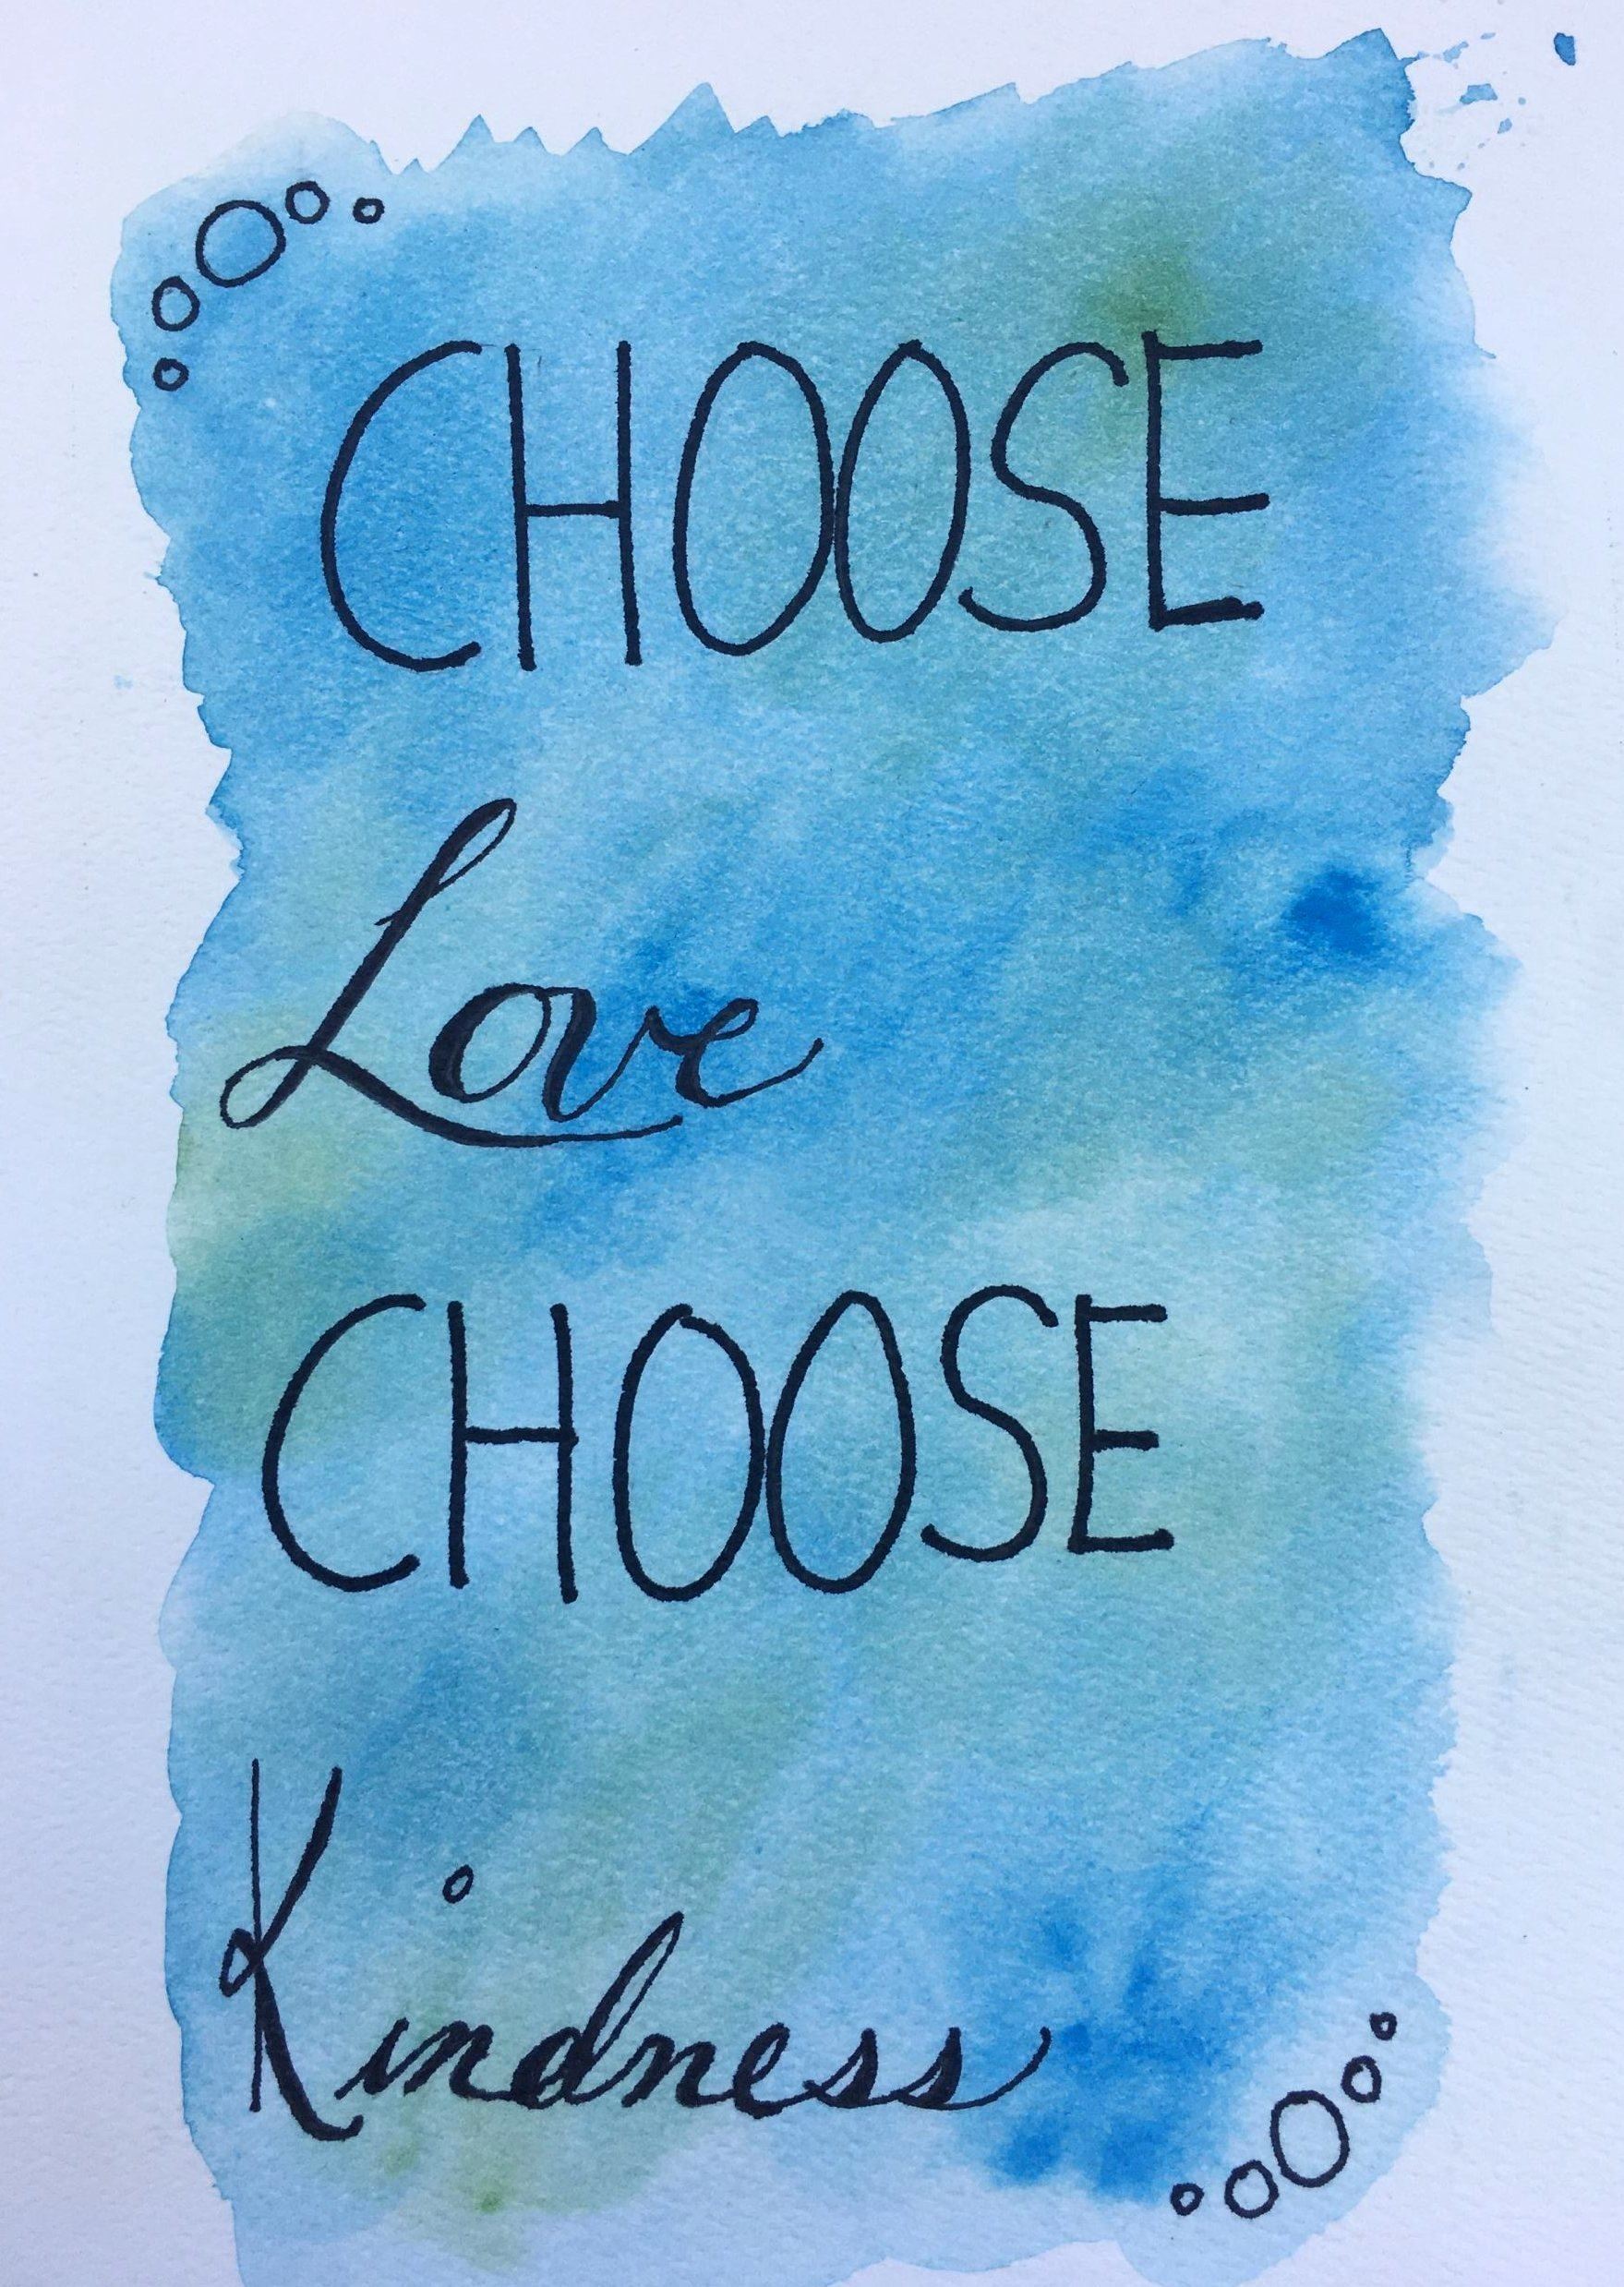 CHOOSE
Love
CHOOSE
Kindness